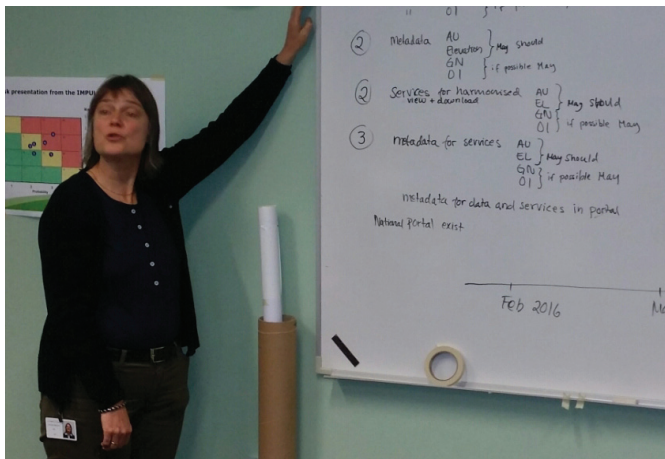 sk presentation from the IMPU
OI
② Metadata AU
Elevation } May should
GN
OI } if possible May
② Services for harmonised AU
view + download EL } May should
GN
OI } if possible May
③ metadata for services AU
EL } May should
GN
OI } if possible May
metadata for data and services in portal
National Portal exist
Feb 2016